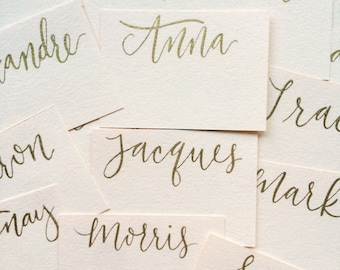 andre
Anna
Trac
ron
Jacques
Mark
nay
Morris